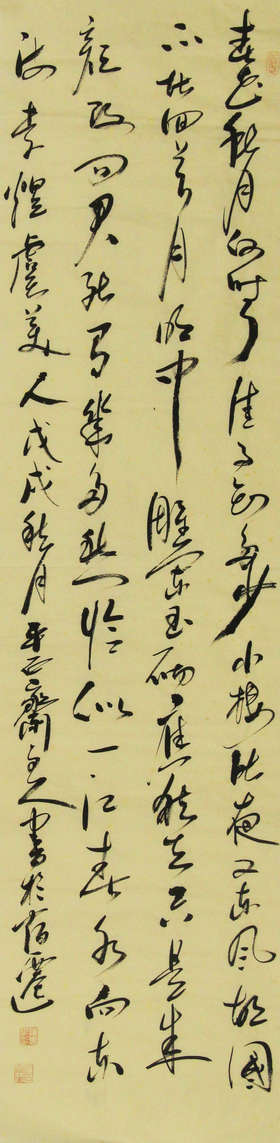 春花秋月何時了往事知多少小樓昨夜又東風故國
不堪回首月明中雕闌玉砌應猶在只是朱
顏改問君能有幾多愁恰似一江春水向東
流李煜虞美人戊戌秋月齋主人書於宿遷